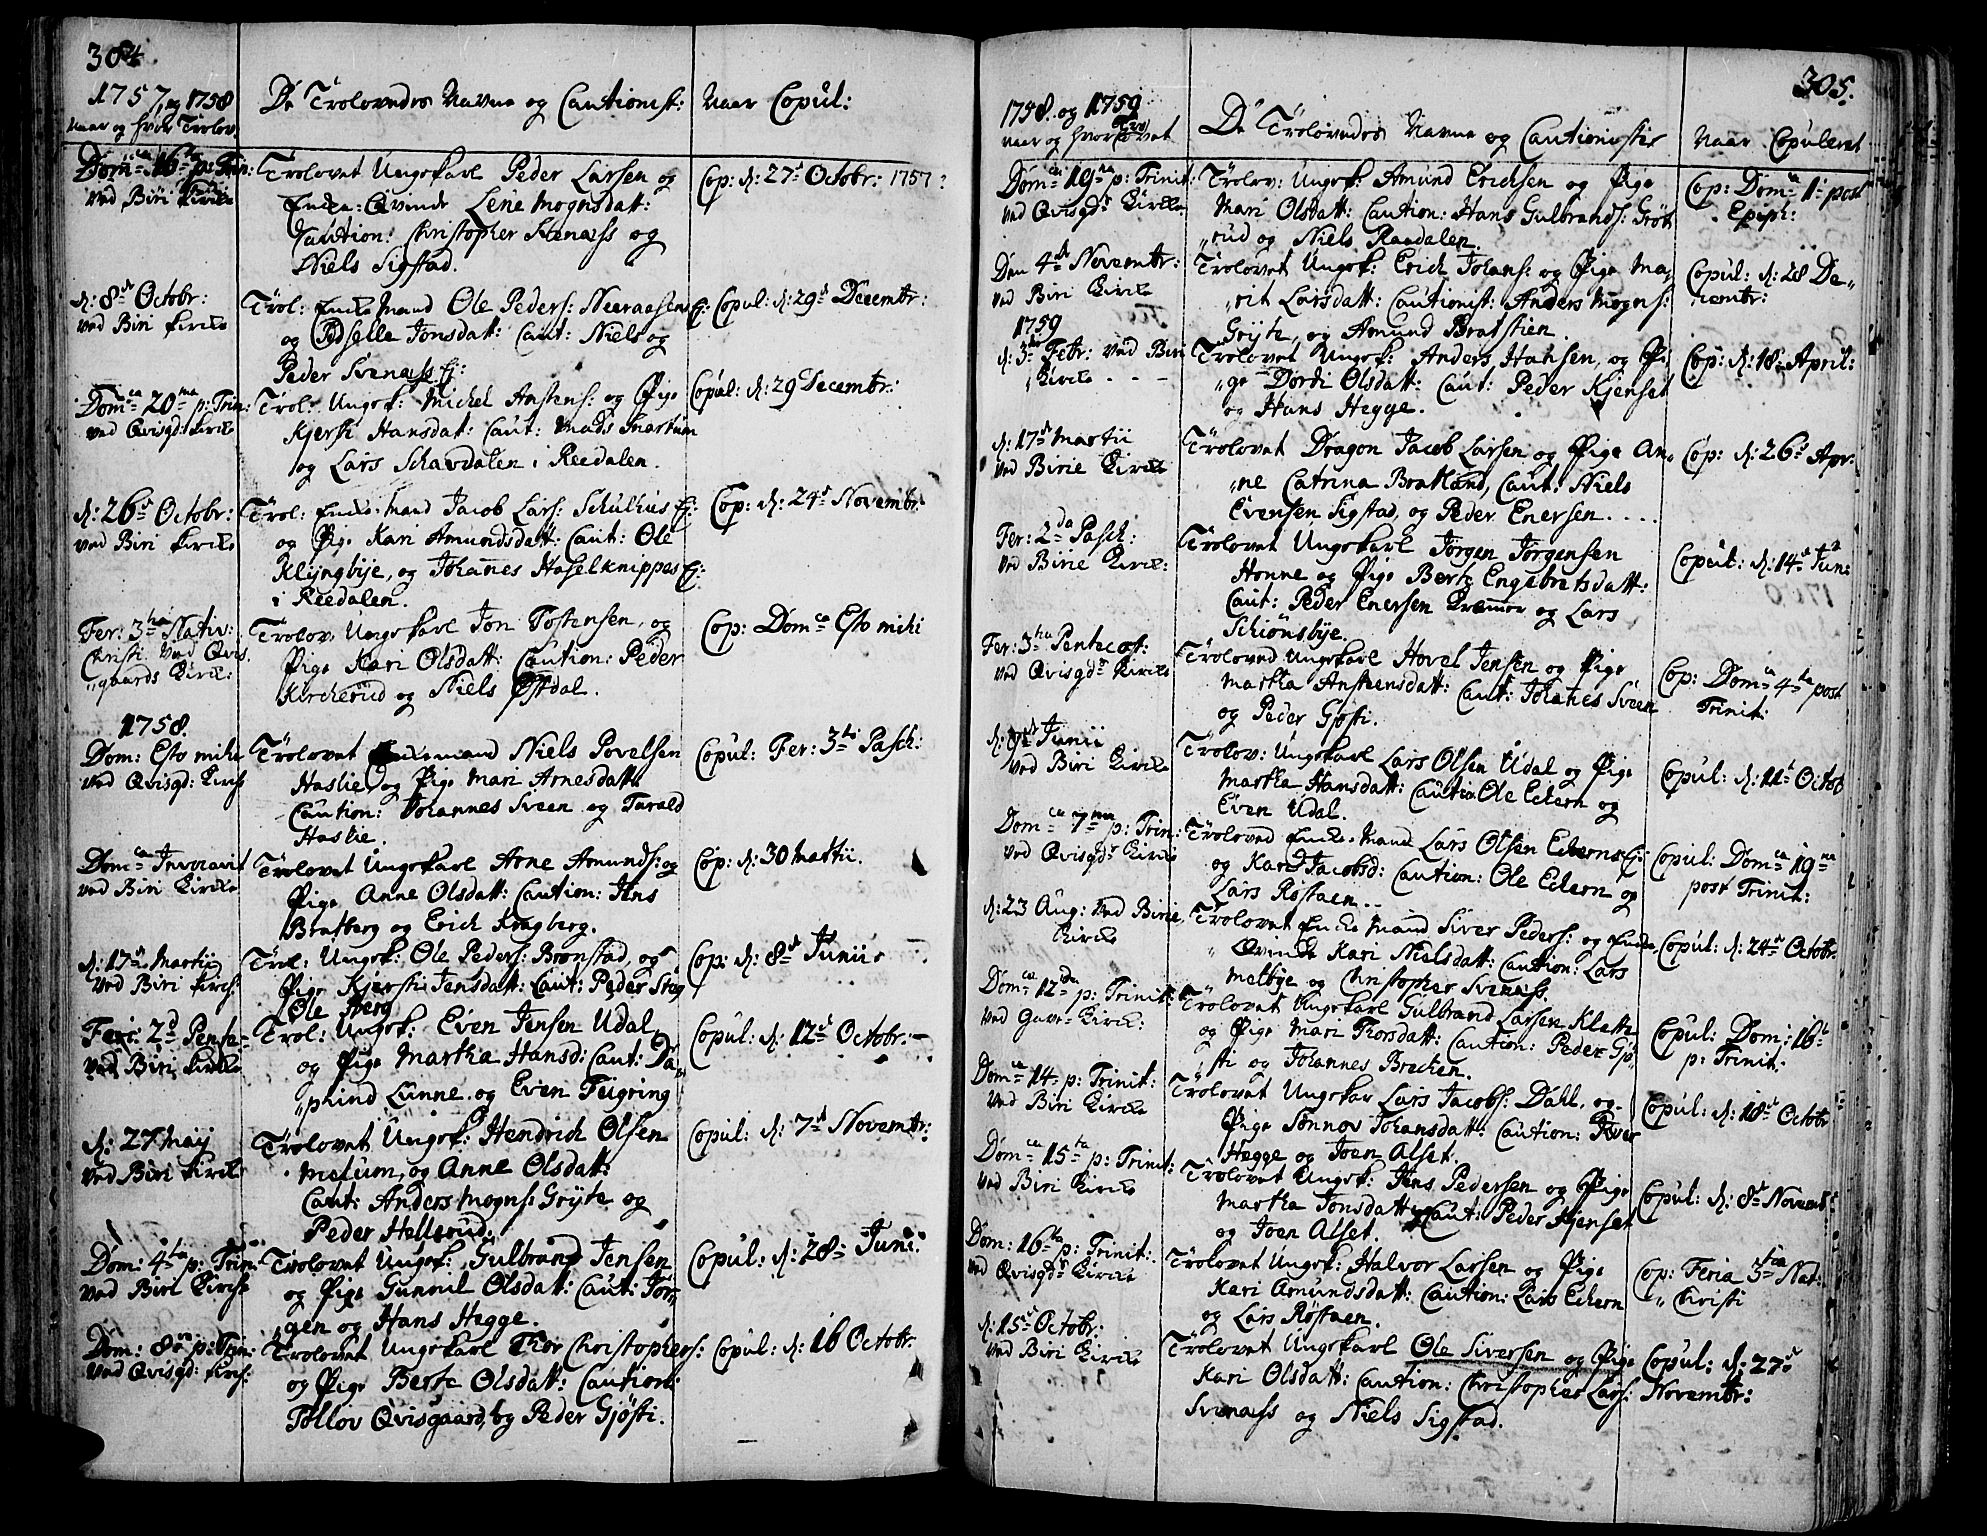 304.
1757, og 1758
Naar og hvor Trolov.
De Trolovedes Navne og Cautionist:
Naar Copul:
Dom: 16 p: Trin:
ved Biri Kircke
Trolovet Ungekarl Peder Larsen og
Encke-Qvinde Lene Mognsdatt:
Caution: Christopher Svenæss og
Niels Sigstad.
Cop: d: 27 Octobr: 1757
d: 8de Octobr:
ved Biri Kircke
Trol: Encke Mand Ole Peders: Neeraasen Ej:
og Pige Pernille Jonsdatt: Caut: Niels og
Peder Svenæss Ej:
Copul: d: 29 Decembr:
Dom: 20 p: Trin:
ved Qvisgd: Kircke
Trol: Ungek: Michel Astens: og Pige
Kjersti Hansdat: Caut: Mads Snartum
og Lars Schavdalen i Reedalen.
Copul: d: 29 Decembr:
d: 26 Octobr:
ved Biri Kircke
Trol: Encke-Mand Jacob Lars: Schulhus Ej:
og Pige Kari Amundsdatt: Caut: Ole
Klÿngbÿe, og Johannes Haselknippes Ej:
i Reedalen.
Cop: d: 24 Novembr:
Fer: 3tia Nativ:
Christi ved Qvis,
"gaards Kirck:
Trolov: Ungekarl Jon Tostensen, og
Pige Kari Olsdatt: Caution: Peder
Kircherud og Niels Østdal.
Cop: Dom: Esto mihi
1758.
Dom: Esto mihi
ved Qvisgd: Kirch
Trolovet Enckemand Niels Povelsen
Haslie, og Pige Mari Arnesdatt
Caution: Johannes Sveen og Tarald
Haslie.
Copul: Fer: 3 Pasch:
Dom: Invocavit
ved Biri Kircke
Trolovet Ungekarl Arne Amunds: og
Pige Anne Olsdatt: Caution: Jens
Bratberg og Erich Kragberg.
Cop: d: 30 Martii.
d: 17 Martii
ved Biri Kirch:
Trol: Ungek: Ole Peders: Bronstad, og
Pige Kjersti Jensdatt: Caut: Peder Steg
Ole Berg
Cop: d: 8 Junii
Feri: 2 Pente-
ved Biri Kircke
Trol: Ungek: Even Jensen Udal,
og Pige Martha Hansd: Caut: Da,
"phind Lunne og Even Feigring
Copul: d: 12 Octobr:
d: 27 Maij
ved Biri Kircke
Trolovet Ungek: Hendrich Olsen
Melum, og Anne Olsdatt:
Caut: Anders Mogns: Grÿte og
Peder Hellerud.
Copul: d: 7 Novembr:
Dom: 4 p: Trin:
ved Biri Kirch
Trolovet Ungek: Gulbrand Jensen
og Pige Gunnil Olsdatt: Caut: Jør,
"gen og Hans Hegge.
Copul: d: 28 Juni:
Dom: 8 p: Trin:
ved Qvisgd: Kirch:
Trolovet Ungekarl Thor Christophers:
og Pige Berte Olsdatt: Caution:
Tollov Qvisgaard, og Peder Gjøsti.
Copul: d: 16 Octobr.
305.
1758. og 1759
Naar og hvor Trolovet
De Trolovedes Navne og Cautionister
Naar Copuleret
Dom: 19 p: Trinit:
ved Qvisgd: Kircke
Trolov: Ungek: Amund Erichsen og Pige
Mari Olsdatt: Caution: Hans Gulbrands: Grøt
"rud og Niels Raadalen.
Cop: Dom: 1: post
Epiph:
Den 4 Novembr:
ved Biri Kircke
Trolovet Ungek: Erich Johans: og Pige Ma,
"rit Larsdatt: Cautionist: Anders Mogns:
Grÿte, og Amund Bratstien.
Copul: d: 28 De,,
cembr:
1759
d: 3 Febr: ved Biri
Kircke
Trolovet Ungek: Anders Hansen, og Pi,
"ge Dordi Olsdatt: Caut: Peder Kjenset
og Hans Hegge.
Cop: d: 18 April:
d: 17 Martii
ved Birie Kircke
Trolovet Dragon Jacob Larsen og Pige An,
"ne Catrina Bratland, Caut: Niels
Evensen Sigstad, og Peder Enersen....
Cop: d: 26 Apr:
Fer: 2da Pasch:
ved Birie Kirck:
Trolovet Ungekarl Jørgen Jørgensen
Honne og Pige Berte Engebretsdatt:
Caut: Peder Enersen Kræmmer og Lars
Schiønsbÿe.
Copul: d: 14 Juni
Fer: 3tia Pentecost:
ved Qvisgd: Kircke
Trolovet Ungekarl Hovel Jensen og Pige
Martha Anstensdatt: Caut: Johanes Sveen
og Peder Gjøsti.
Cop: Dom: 4 post
Trinit.
d: 9 Junii
ved Biri Kircke
Trolov: Ungekarl Lars Olsen Udal og Pige
Martha Hansdatt: Cautio: Ole Eckern og
Even Udal.
Copul: d: 11 Octob
Dom: 7 p: Trin:
ved Qvisgd: Kircke
Trolovet Encke-Mand Lars Olsen Eckerns Ej:
og Kari Jacobsd: Caution: Ole Eckern og
Lars Røstaen..
Copul: Dom: 19
post Trinit:
d: 23 Aug: ved Birie
Kircke
Trolovet Encke Mand Siver Peders: og Encke
Qvinde Kari Nielsdatt: Caution: Lars
Melbÿe og Christopher Svenæss.
Copul: d: 24 Octobr.
Dom: 12 p: Trinit:
ved Gave-Kirck:
Trolovet Ungekarl Gulbrand Larsen Klatte
og Pige Mari Thorsdatt: Caution: Peder Gjø,
"sti og Johannes Brechen.
Copul: Dom: 16
p: Trinit:
Dom: 14 p: Trinit:
ved Biri Kircke
Trolovet Ungekar Lars Jacobs: Dahl, og
Pige Sønnov Johansdatt: Caution: Iver
Hegge og Joen Alset.
Copul: d: 18 Octobr
Dom: 15 p: Trinit:
ved Biri Kircke
Trolovet Ungek: Jens Pedersen og Pige
Martha Jonsdatt: Caut: Peder Kjenset
og Joen Alset.
Copul: d: 8 Novemb:
Dom: 16 p: Trinit:
ved Qvisgd: Kircke
Trolovet Ungek: Halvor Larsen og Pige
Kari Amundsdatt: Caution: Lars Eckern
og Lars Røstaen.
Cop: Feria 3tia Nat:
" Christi
d: 15 Octobr:
ved Biri Kircke
Trolovet Ungekarl Ole Siversen og Pige
Kari Olsdatt: Caution: Christopher Lars:
Svenæss og Niels Sigstad.
Copul: d: 27
Novembr: